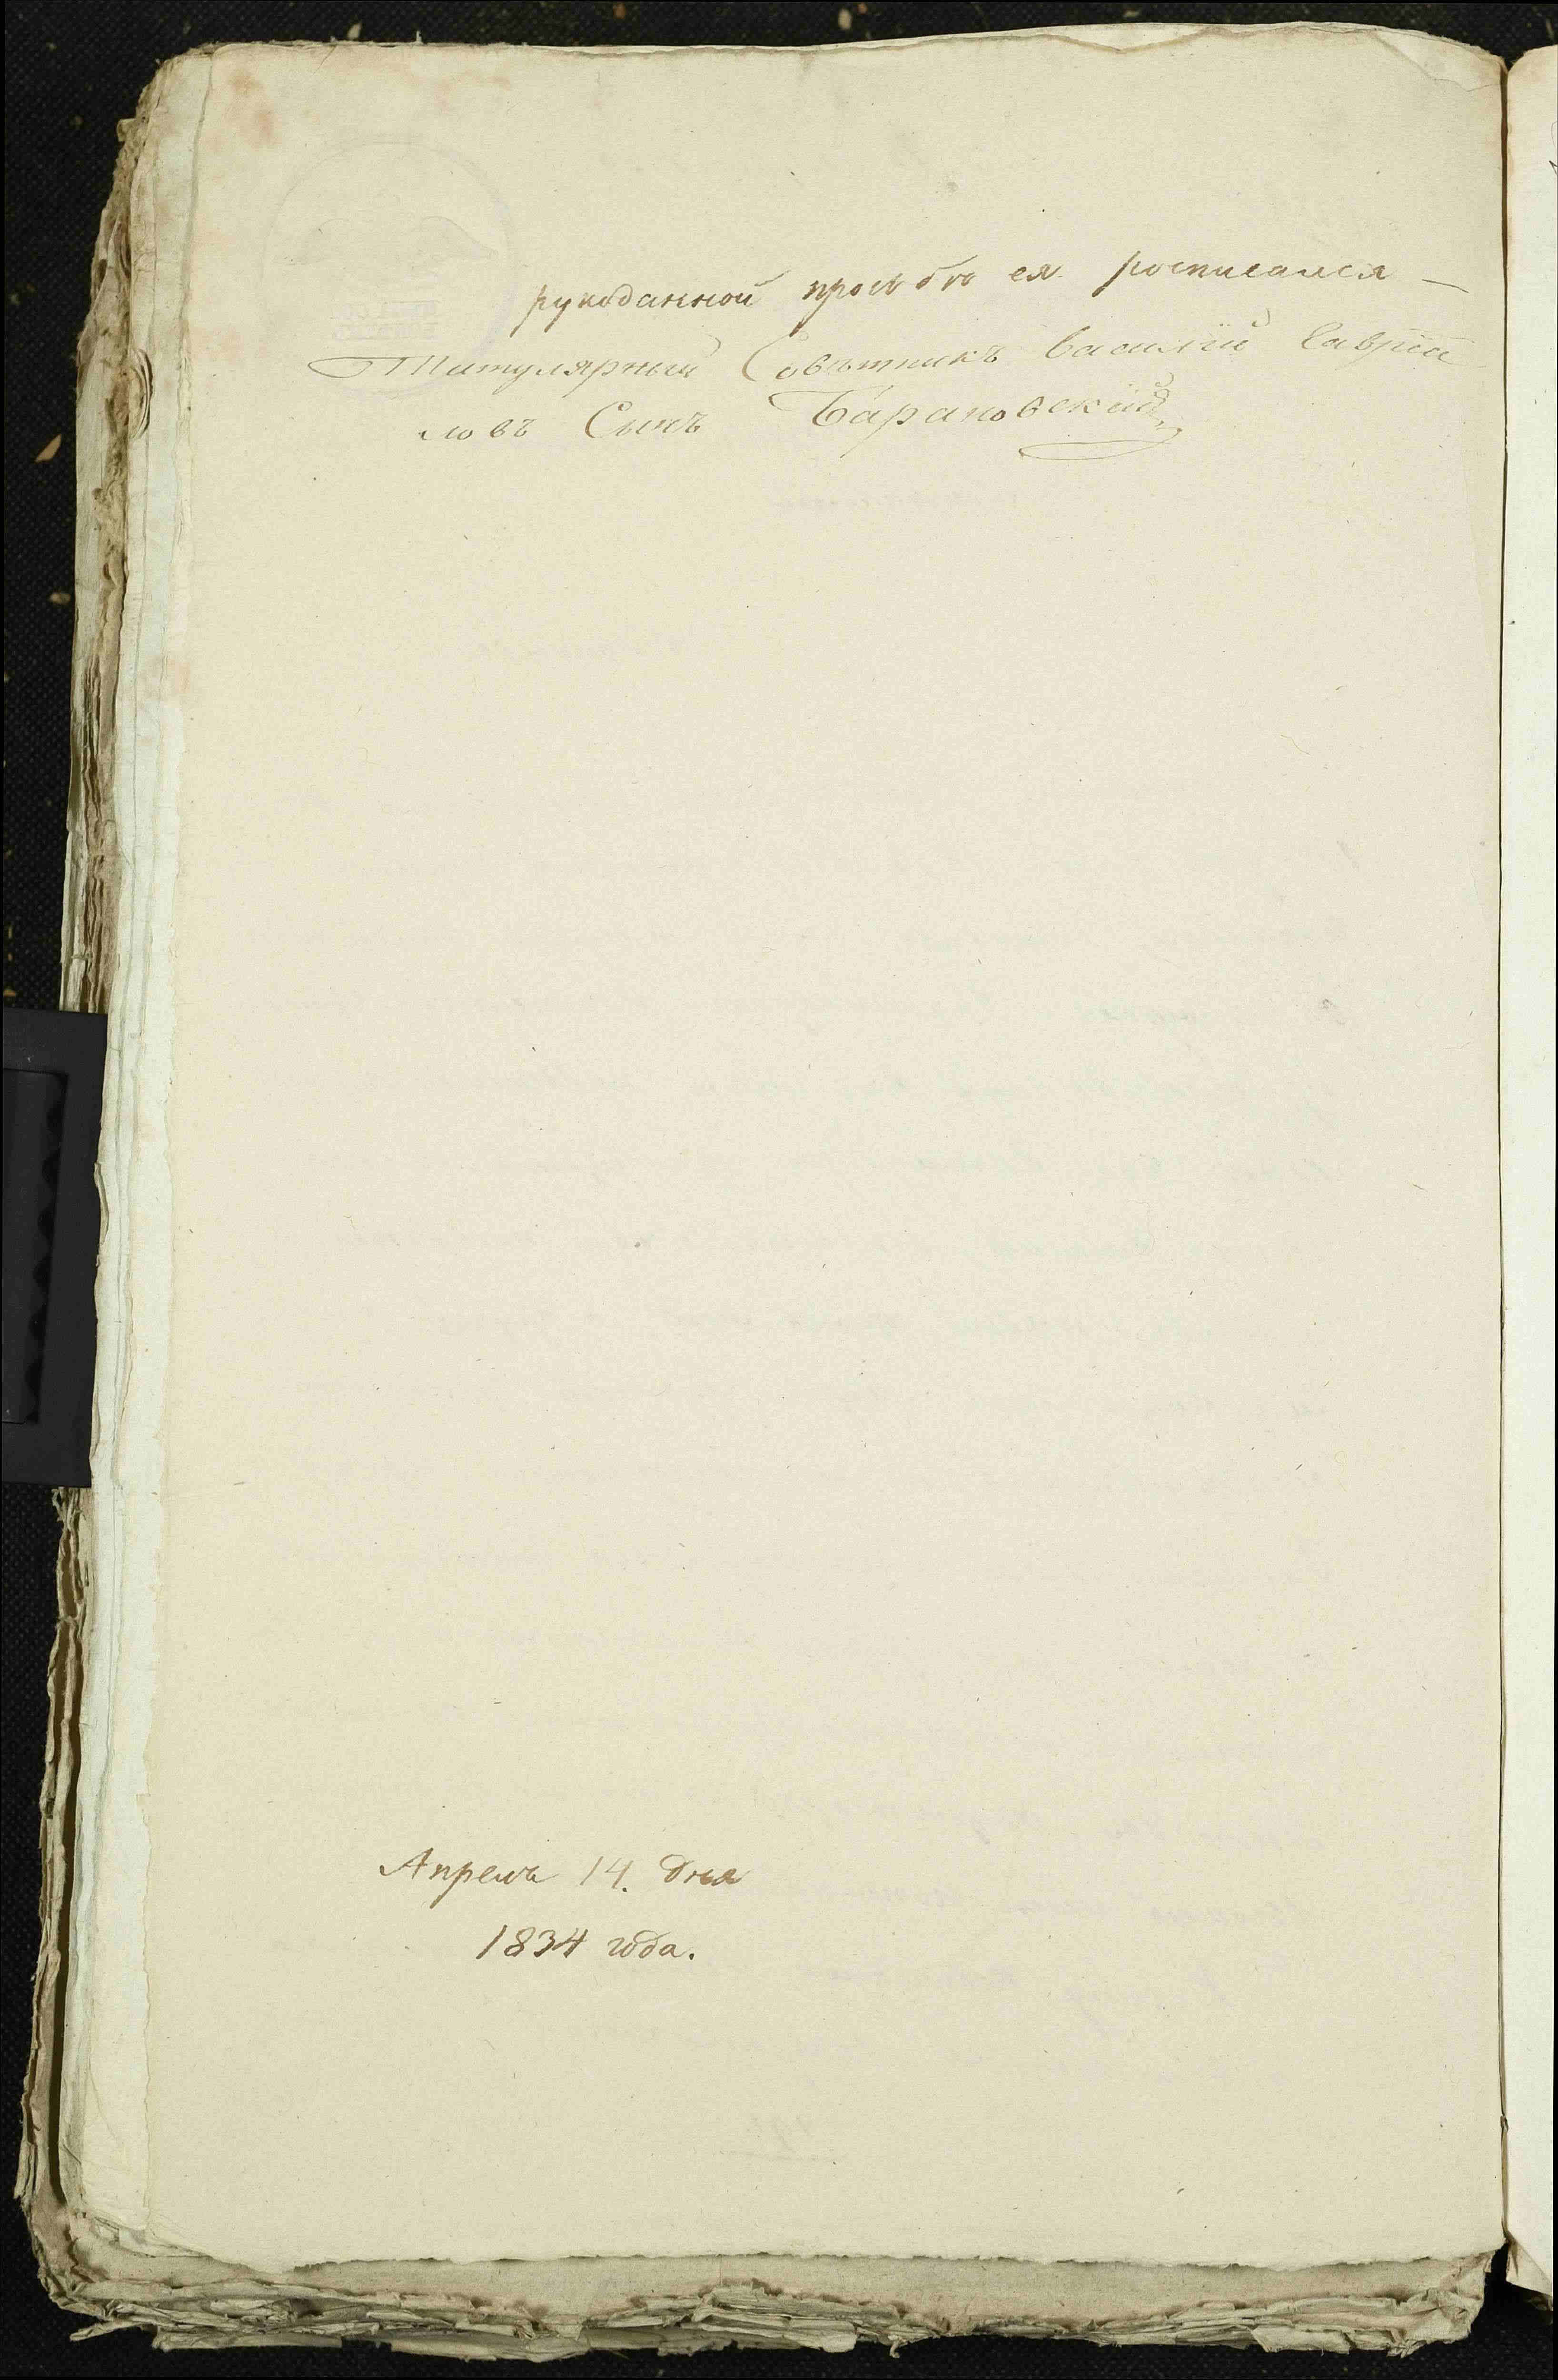 рукоданной прозьбѣ ея росписался —
Титулярный Совѣтникъ Василій Гаврій
ловъ Сынъ Барановскій
Апреля 14. дня
1834 года.